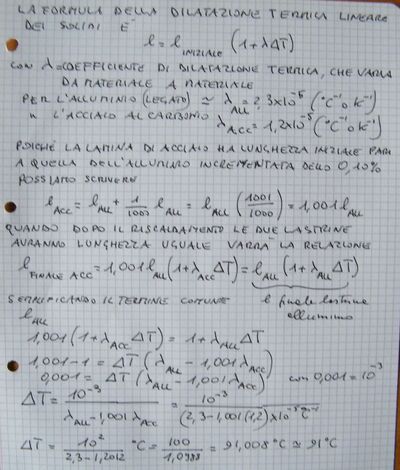 LA FORMULA DELLA DILATAZIONE TERMICA LINEARE
DEI SOLIDI E'
l = l INIZIALE (1+λΔT)
CON λ=COEFFICIENTE DI DILATAZIONE TERMICA, CHE VARIA
DA MATERIALE A MATERIALE
PER L'ALLUMINIO (LEGATO) ≃ λ_ALL = 2,3×10⁻⁵ (°C⁻¹ o K⁻¹)
" L'ACCIAIO AL CARBONIO λ_ACC = 1,2×10⁻⁵ (°C⁻¹ o K⁻¹)
POICHÈ LA LAMINA DI ACCIAIO HA LUNGHEZZA INIZIALE PARI
A QUELLA DELL'ALLUMINIO INCREMENTATA DELLO 0,10%
POSSIAMO SCRIVERE
l_ACC = l_ALL + 1/1000 l_ALL = l_ALL (1001/1000) = 1,001 l_ALL
QUANDO DOPO IL RISCALDAMENTO LE DUE LASTRINE
AVRANNO LUNGHEZZA UGUALE VARRA' LA RELAZIONE
l FINALE ACC = 1,001 l_ALL (1+λ_ACC ΔT) = l_ALL (1+λ_ALL ΔT)
SEMPLIFICANDO IL TERMINE COMUNE l finale lastrina
l_ALL alluminio
1,001 (1+λ_ACC ΔT) = 1+λ_ALL ΔT
1,001-1 = ΔT (λ_ALL - 1,001 λ_ACC)
0,001 = ΔT (λ_ALL - 1,001 λ_ACC) con 0,001 = 10⁻³
ΔT = 10⁻³/(λ_ALL - 1,001 λ_ACC) = 10⁻³/((2,3-1,001(1,2))×10⁻⁵ °C⁻¹)
ΔT = 10²/(2,3-1,2012) °C = 100/1,0988 = 91,008°C ≃ 91°C